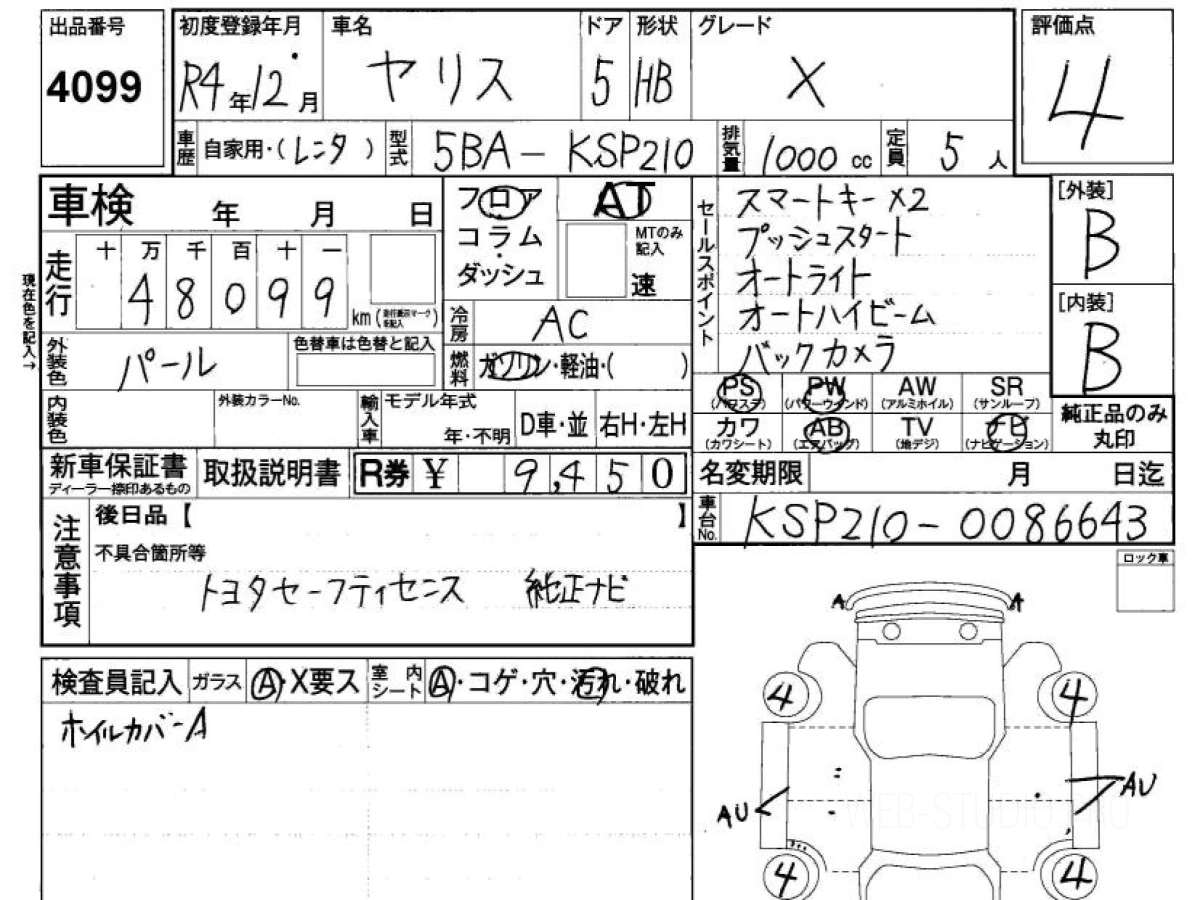 出品番号
4099
初度登録年月 車名 ドア 形状 グレード
R4年12月 ヤリス 5 HB X
評価点
4
車歴 自家用・(レンタ) 型式 5BA-KSP210 排気量 1000 cc 定員 5人
車検 年 月 日
フロア AT
コラム MTのみ記入
ダッシュ 速
走行 十 万 千 百 十 一
48099 km
現在色を記入→
冷房 AC
燃料 ガソリン・軽油・( )
外装色 パール 色替車は色替と記入
内装色 外装カラーNo.
輸入車 モデル年式 年・不明 D車・並 右H・左H
セールスポイント
スマートキー×2
プッシュスタート
オートライト
オートハイビーム
バックカメラ
[外装]
B
[内装]
B
PS PW AW SR
(パワステ) (パワーウインド) (アルミホイル) (サンルーフ)
カワ AB TV ナビ
(カワシート) (エアバッグ) (地デジ) (ナビゲーション)
純正品のみ
丸印
新車保証書
ディーラー捺印あるもの
取扱説明書
R券 ¥ 9,450
名変期限 月 日迄
車台No. KSP210-0086643
注意事項
後日品【 】
不具合箇所等
トヨタセーフティセンス 純正ナビ
ロック車
検査員記入 ガラス A・X要ス 室内シート A・コゲ・穴・汚れ・破れ
ホイルカバーA
A A
4 4
AU AU
WEB-STUDIO.RU
4 4